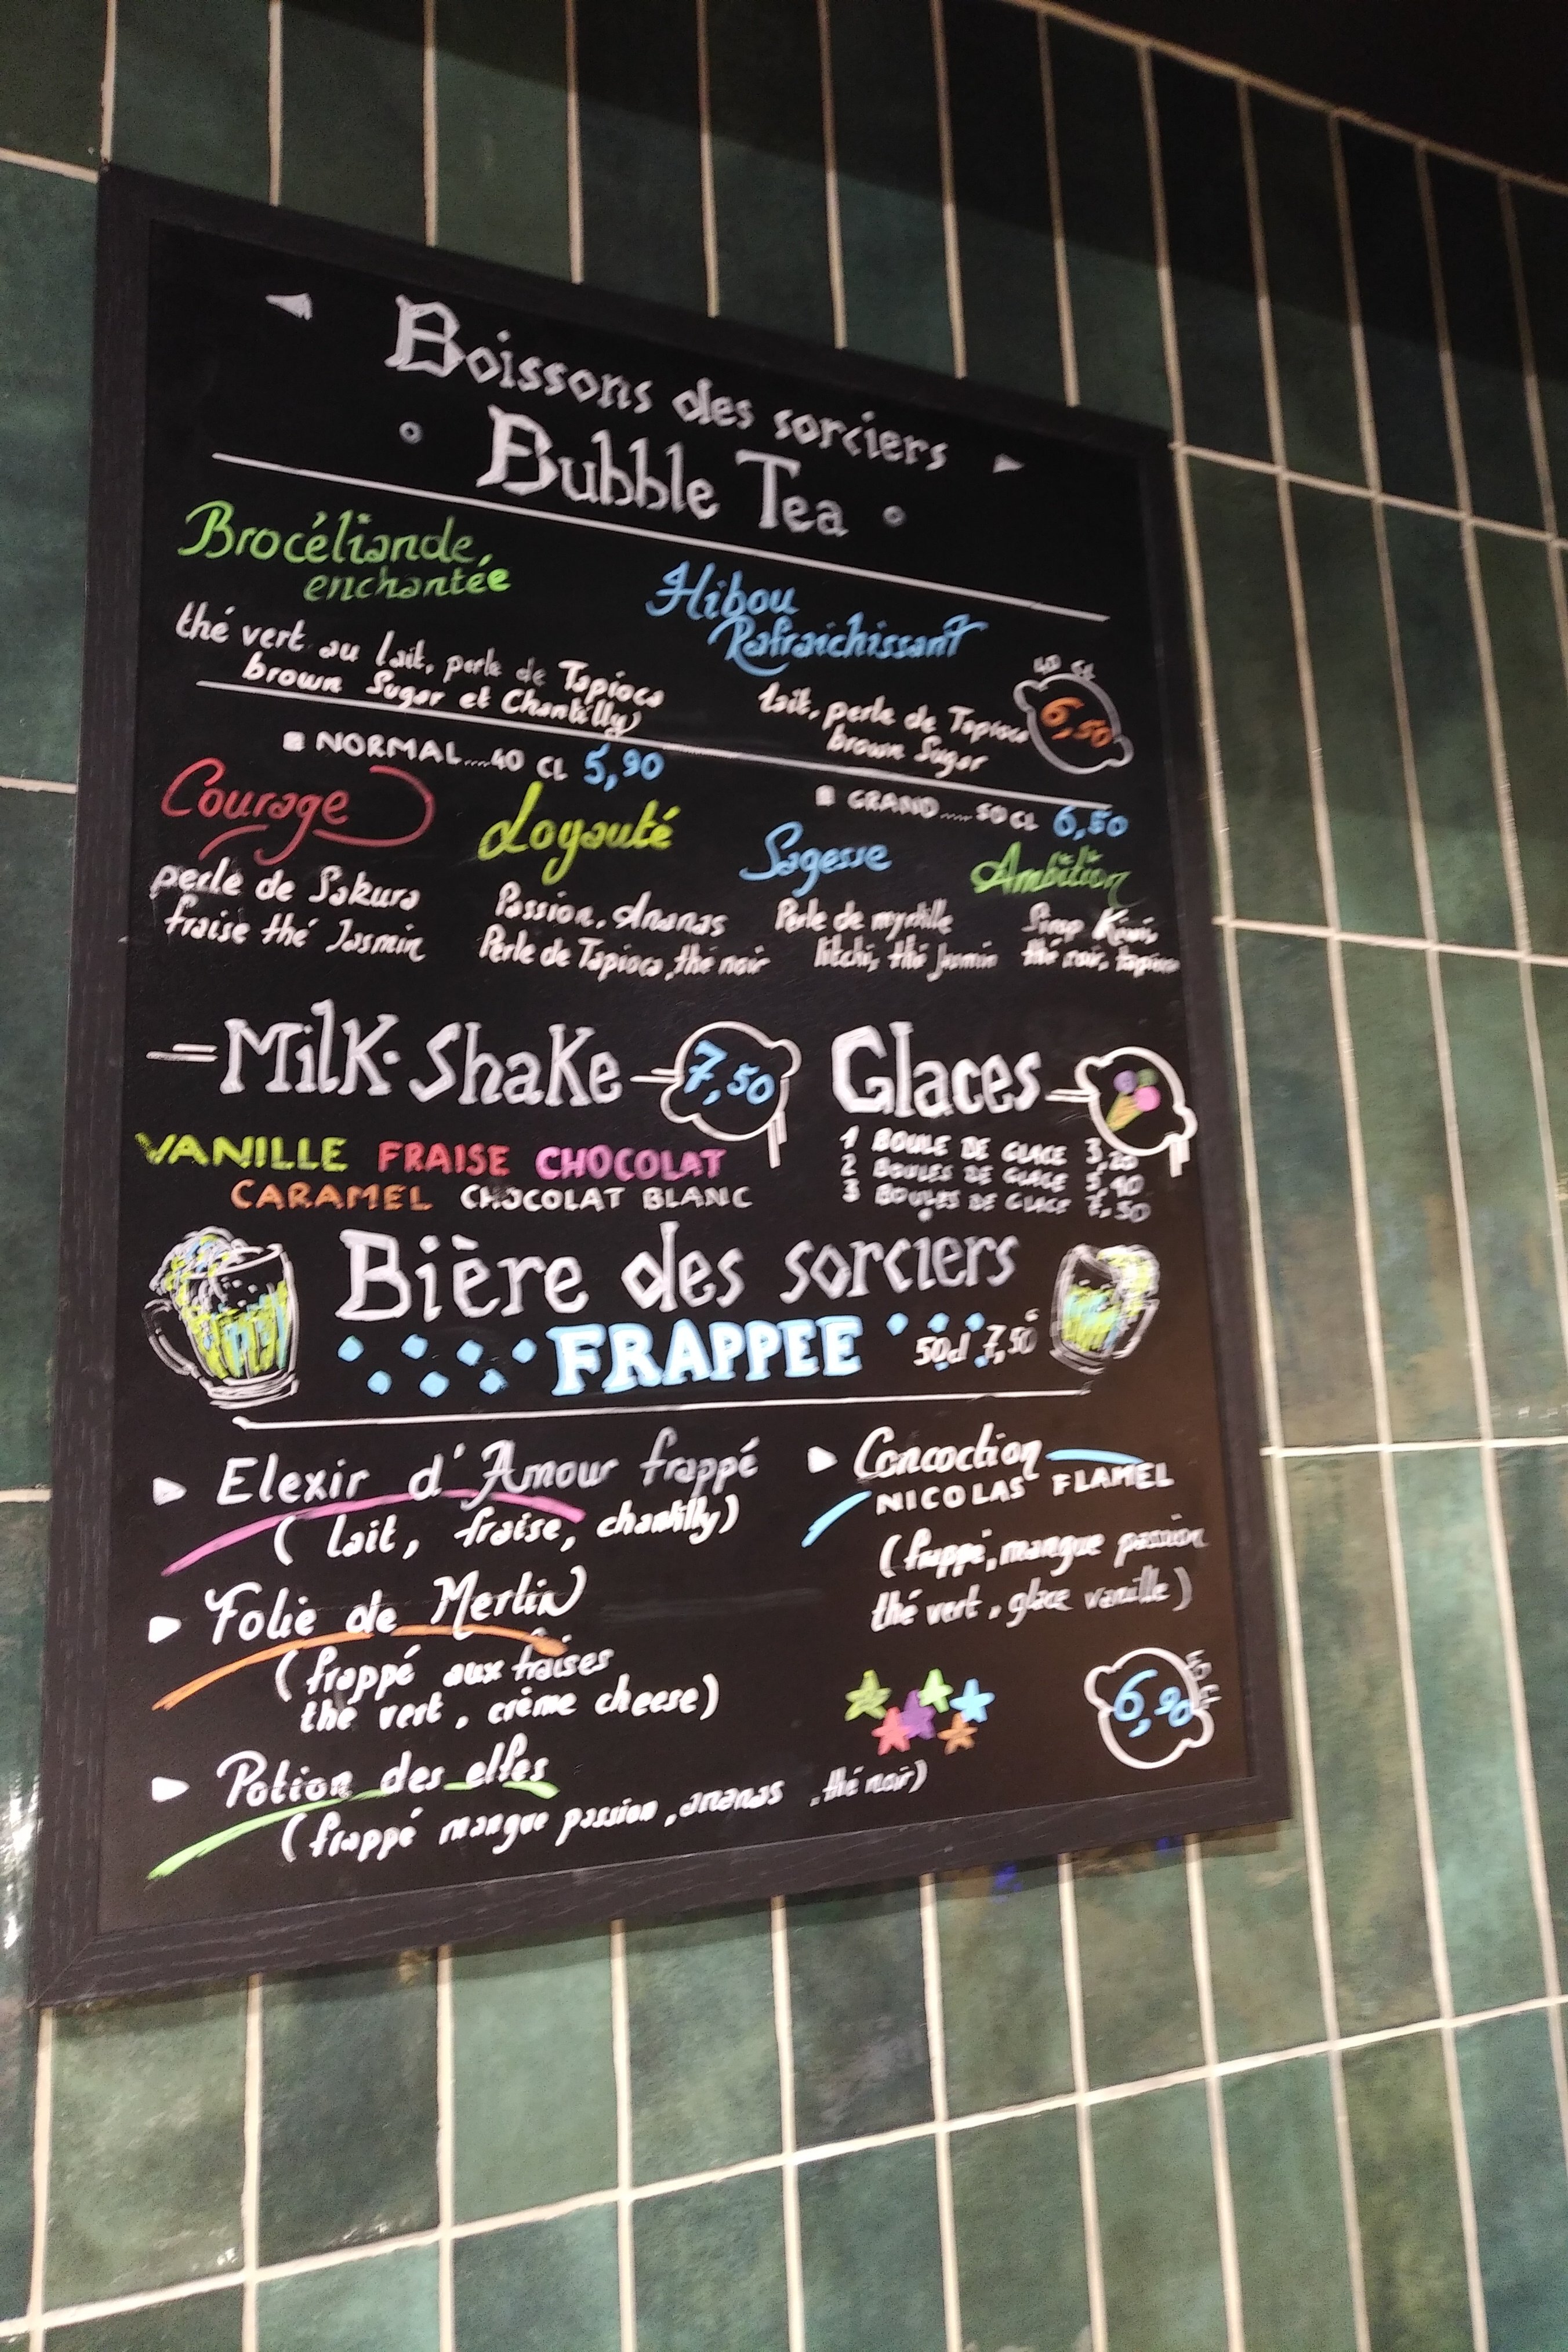 Boissons des sorciers
Bubble Tea
Brocéliande
enchantée
thé vert au lait, perle de Tapioca
brown Sugar et Chantilly
Hibou
Rafraichissant
lait, perle de Tapioca
brown Sugar
40 CL
6,50
NORMAL....40 CL 5,90
GRAND.....50 CL 6,50
Courage
perle de Sakura
fraise thé Jasmin
Loyauté
Passion, Ananas
Perle de Tapioca, thé noir
Sagesse
Perle de myrtille
litchi, thé Jasmin
Ambition
Sirop Kiwi,
thé noir, tapioca
Milk-Shake 7,50
VANILLE FRAISE CHOCOLAT
CARAMEL CHOCOLAT BLANC
Glaces
1 BOULE DE GLACE
2 BOULES DE GLACE 5,40
3 BOULES DE GLACE 7,50
Bière des sorciers
FRAPPEE 50cl 7,50
Elexir d'Amour frappé
( lait, fraise, chantilly)
Folie de Merlin
(frappé aux fraises
thé vert, crème cheese)
Potion des elfes
(frappé mangue passion, ananas, thé noir)
Concoction
NICOLAS FLAMEL
(frappé, mangue passion
thé vert, glace vanille)
6,90